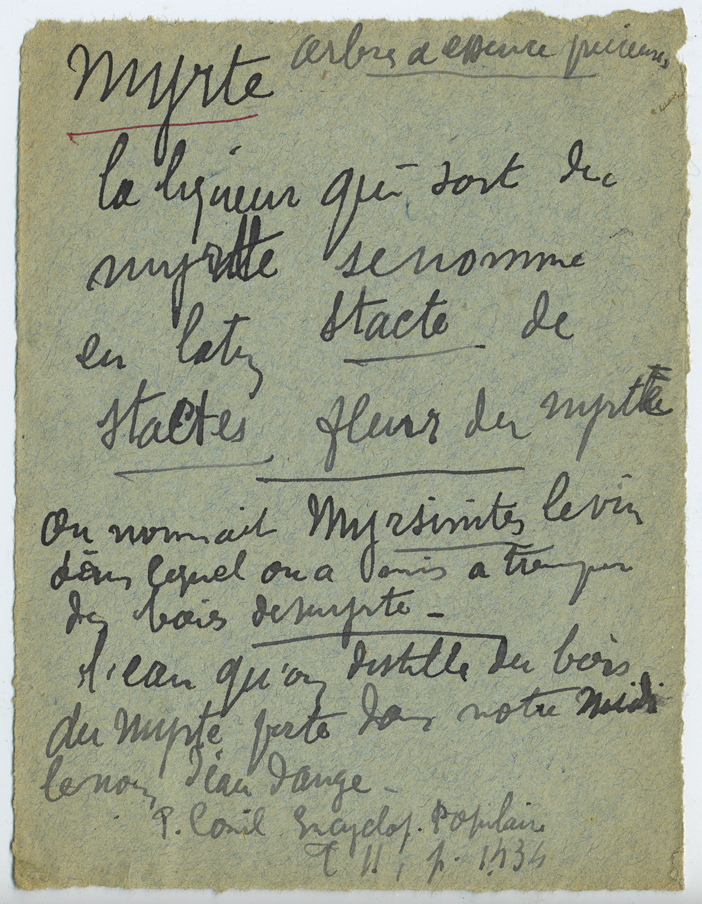 Myrte arbres d'essence précieuses
la liqueur qui sort du
myrtte se nomme
en latin stacte de
stactes fleur du myrtte
On nommait Myrsinites le vin
dans lequel on a mis a tremper
des baies de myrte -
l'eau qu'on distille du bois
du Myrte porte dans notre Midi
le nom d'eau d'ange -
P. Conil Encyclop. Populaire
T II, p. 1434